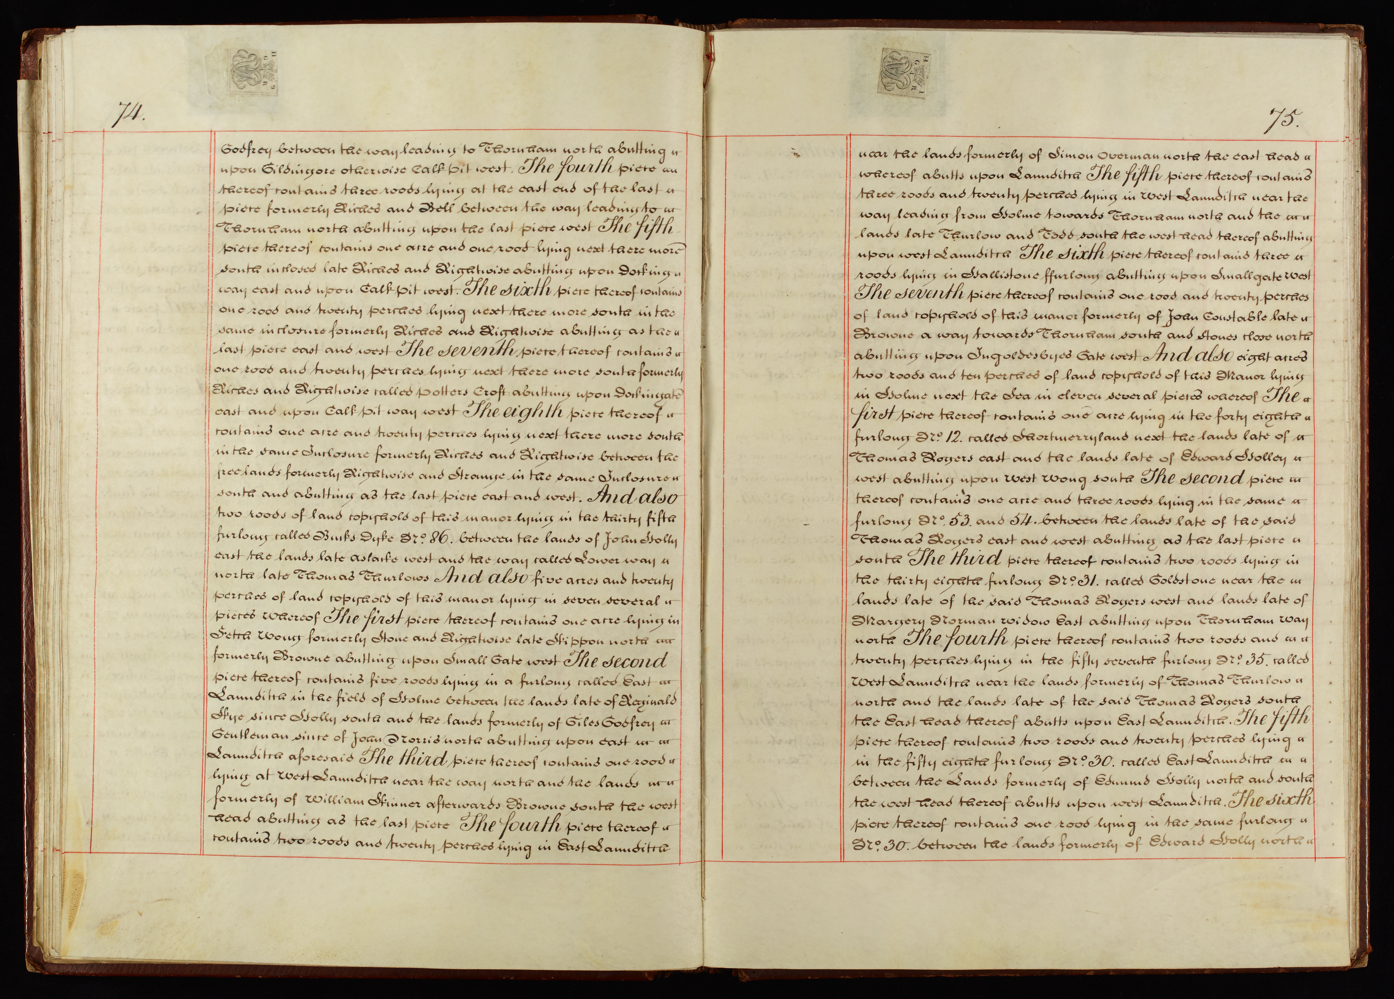 74.
Godfrey between the way leading to Thornham north abutting
upon Gildingore otherwise Calk Pit west. The fourth piece
thereof contains three roods lying at the east end of the last
piece formerly Riches and Bell between the way leading to
Thornham north abutting upon the last piece west The fifth
piece thereof contains one acre and one rood lying next there more
south inclosed late Riches and Rightwise abutting upon Docking
way east and upon Calk Pit west. The sixth piece thereof contains
one rood and twenty perches lying next there more south in the
same inclosure formerly Riches and Rightwise abutting as the
last piece east and west The seventh piece thereof contains
one rood and twenty perches lying next there more south formerly
Riches and Rightwise called Potters Croft abutting upon Dockingate
east and upon Calk Pit way west The eighth piece thereof
contains one acre and twenty perches lying next there more south
in the same Inclosure formerly Riches and Rightwise between the
free lands formerly Rightwise and Strange in the same Inclosure
south and abutting as the last piece east and west. And also
two roods of land copyhold of this manor lying in the thirty fifth
furlong called Binks Dyke No. 86. between the lands of John Holly
east the lands late aslacke west and the way called Lower way
north late Thomas Thurlows And also five acres and twenty
perches of land copyhold of this manor lying in seven several
pieces Whereof The first piece thereof contains one acre lying in
Fetch Wong formerly Stone and Rightwise late Skippon north
formerly Browne abutting upon Small Gate west The second
piece thereof contains five roods lying in a furlong called East
Launditch in the field of Holme between the lands late of Reginald
Skye since Holly south and the lands formerly of Giles Godfrey
Gentleman since of John Norris north abutting upon east
Launditch aforesaid The third piece thereof contains one rood
lying at West Launditch near the way north and the lands
formerly of William Skinner afterwards Browne south the west
head abutting as the last piece The fourth piece thereof
contains two roods and twenty perches lying in East Launditch
75.
near the lands formerly of Simon Overman north the east head
whereof abutts upon Launditch The fifth piece thereof contains
three roods and twenty perches lying in West Launditch near the
way leading from Holme towards Thornham north and the
lands late Thurlow and Todd south the west head thereof abutting
upon west Launditch The sixth piece thereof contains three
roods lying in Hallistone ffurlong abutting upon Smallgate West
The seventh piece thereof contains one rood and twenty perches
of land copyhold of this manor formerly of John Constable late
Browne a way towards Thornham south and Stones close north
abutting upon Ingoldesbyes Gate west And also eight acres
two roods and ten perches of land copyhold of this Manor lying
in Holme next the Sea in eleven several pieces whereof The
first piece thereof contains one acre lying in the forty eighth
furlong No. 12. called Shortmerryland next the lands late of
Thomas Rogers east and the lands late of Edward Holley
west abutting upon West Wong south The second piece
thereof contains one acre and three roods lying in the same
furlong No. 53. and 54. between the lands late of the said
Thomas Rogers east and west abutting as the last piece
south The third piece thereof contains two roods lying in
the thirty eighth furlong No. 31. called Goldstone near the
lands late of the said Thomas Rogers west and lands late of
Margery Norman widow East abutting upon Thornham Way
north The fourth piece thereof contains two roods and
twenty perches lying in the fifty seventh furlong No. 35. called
West Launditch near the lands formerly of Thomas Thurlow
north and the lands late of the said Thomas Rogers south
the East head thereof abutts upon East Launditch. The fifth
piece thereof contains two roods and twenty perches lying
in the fifty eighth furlong No. 30. called East Launditch
between the Lands formerly of Edmund Holly north and south
the west head thereof abutts upon west Launditch. The sixth
piece thereof contains one rood lying in the same furlong
No. 30. between the lands formerly of Edward Holly north